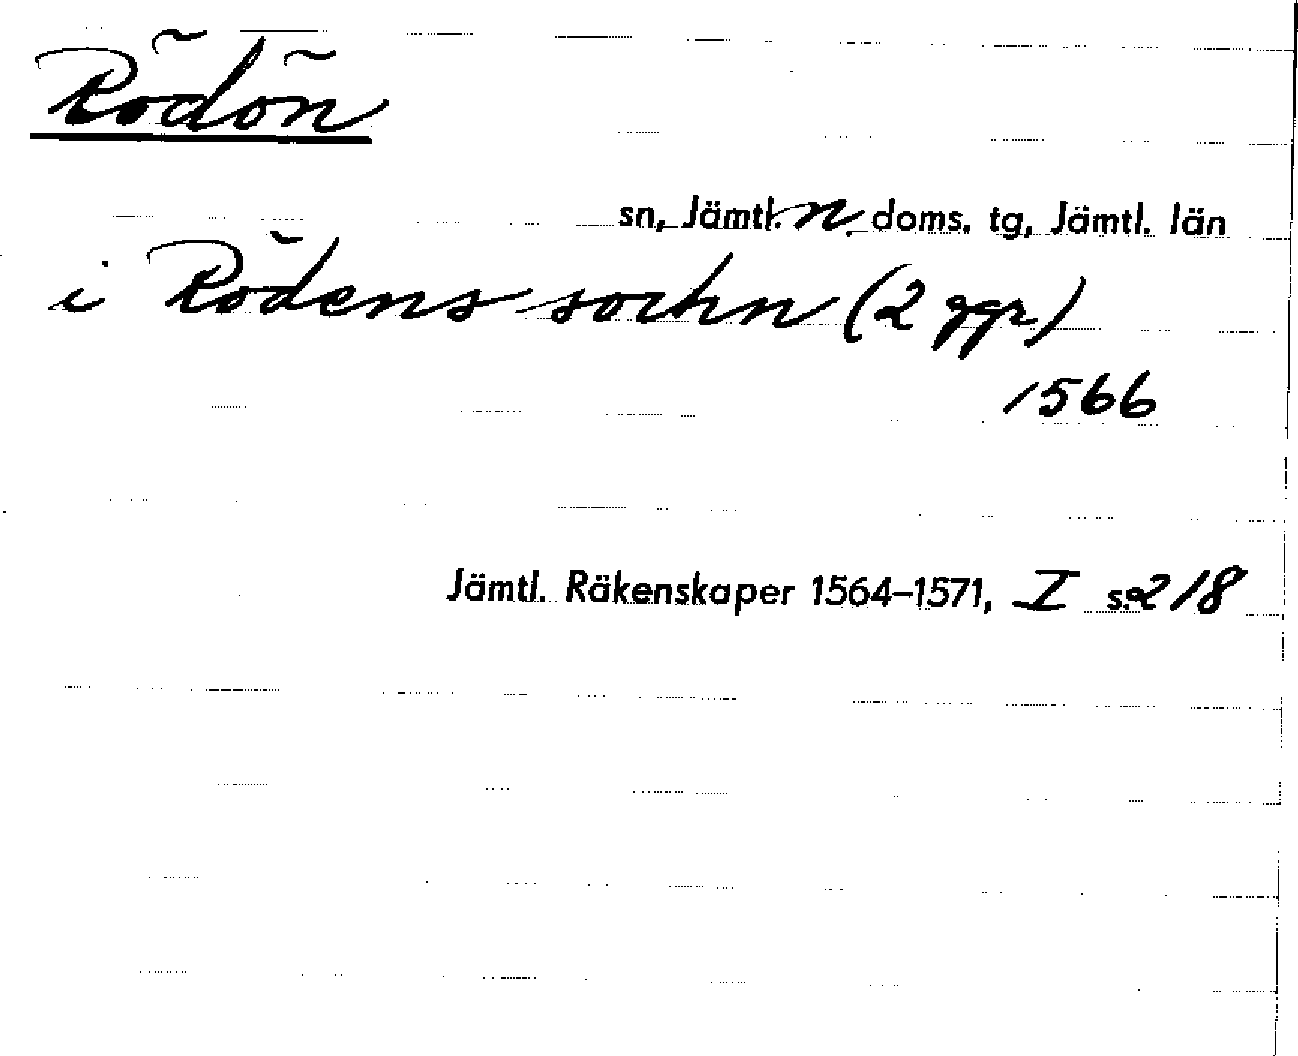 Rödön
sn, Jämtl. n. doms. tg, Jämtl. län
i Rödens sochn (2 ggr)
1566
Jämtl. Räkenskaper 1564–1571, I s. 218